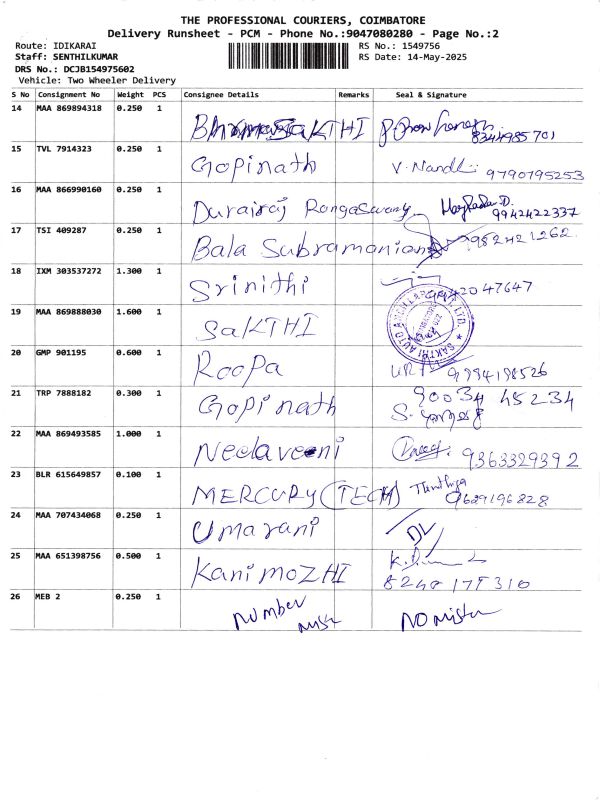 THE PROFESSIONAL COURIERS, COIMBATORE
Delivery Runsheet - PCM - Phone No.:9047080280 - Page No.:2
Route: IDIKARAI RS No.: 1549756
Staff: SENTHILKUMAR RS Date: 14-May-2025
DRS No.: DCJB154975602
Vehicle: Two Wheeler Delivery
S No Consignment No Weight PCS Consignee Details Remarks Seal & Signature
14 MAA 869894318 0.250 1 SAKTHI 8344985701
15 TVL 7914323 0.250 1 Gopinath V. Nandhi 9790795253
16 MAA 866990160 0.250 1 Durairaj Rangaswamy 9942422337
17 TSI 409287 0.250 1 Bala Subramanian 9952421262
18 IXM 303537272 1.300 1 Srinithi
19 MAA 869888030 1.600 1 SAKTHI
20 GMP 901195 0.600 1 Roopa 9994198526
21 TRP 7888182 0.300 1 Gopinath 90034 45234
22 MAA 869493585 1.000 1 Neelaveni 9363329392
23 BLR 615649857 0.100 1 MERCURY (TECH) 9629196828
24 MAA 707434068 0.250 1 Umarani
25 MAA 651398756 0.500 1 KaniMOZHI
26 MEB 2 0.250 1 NUMBER